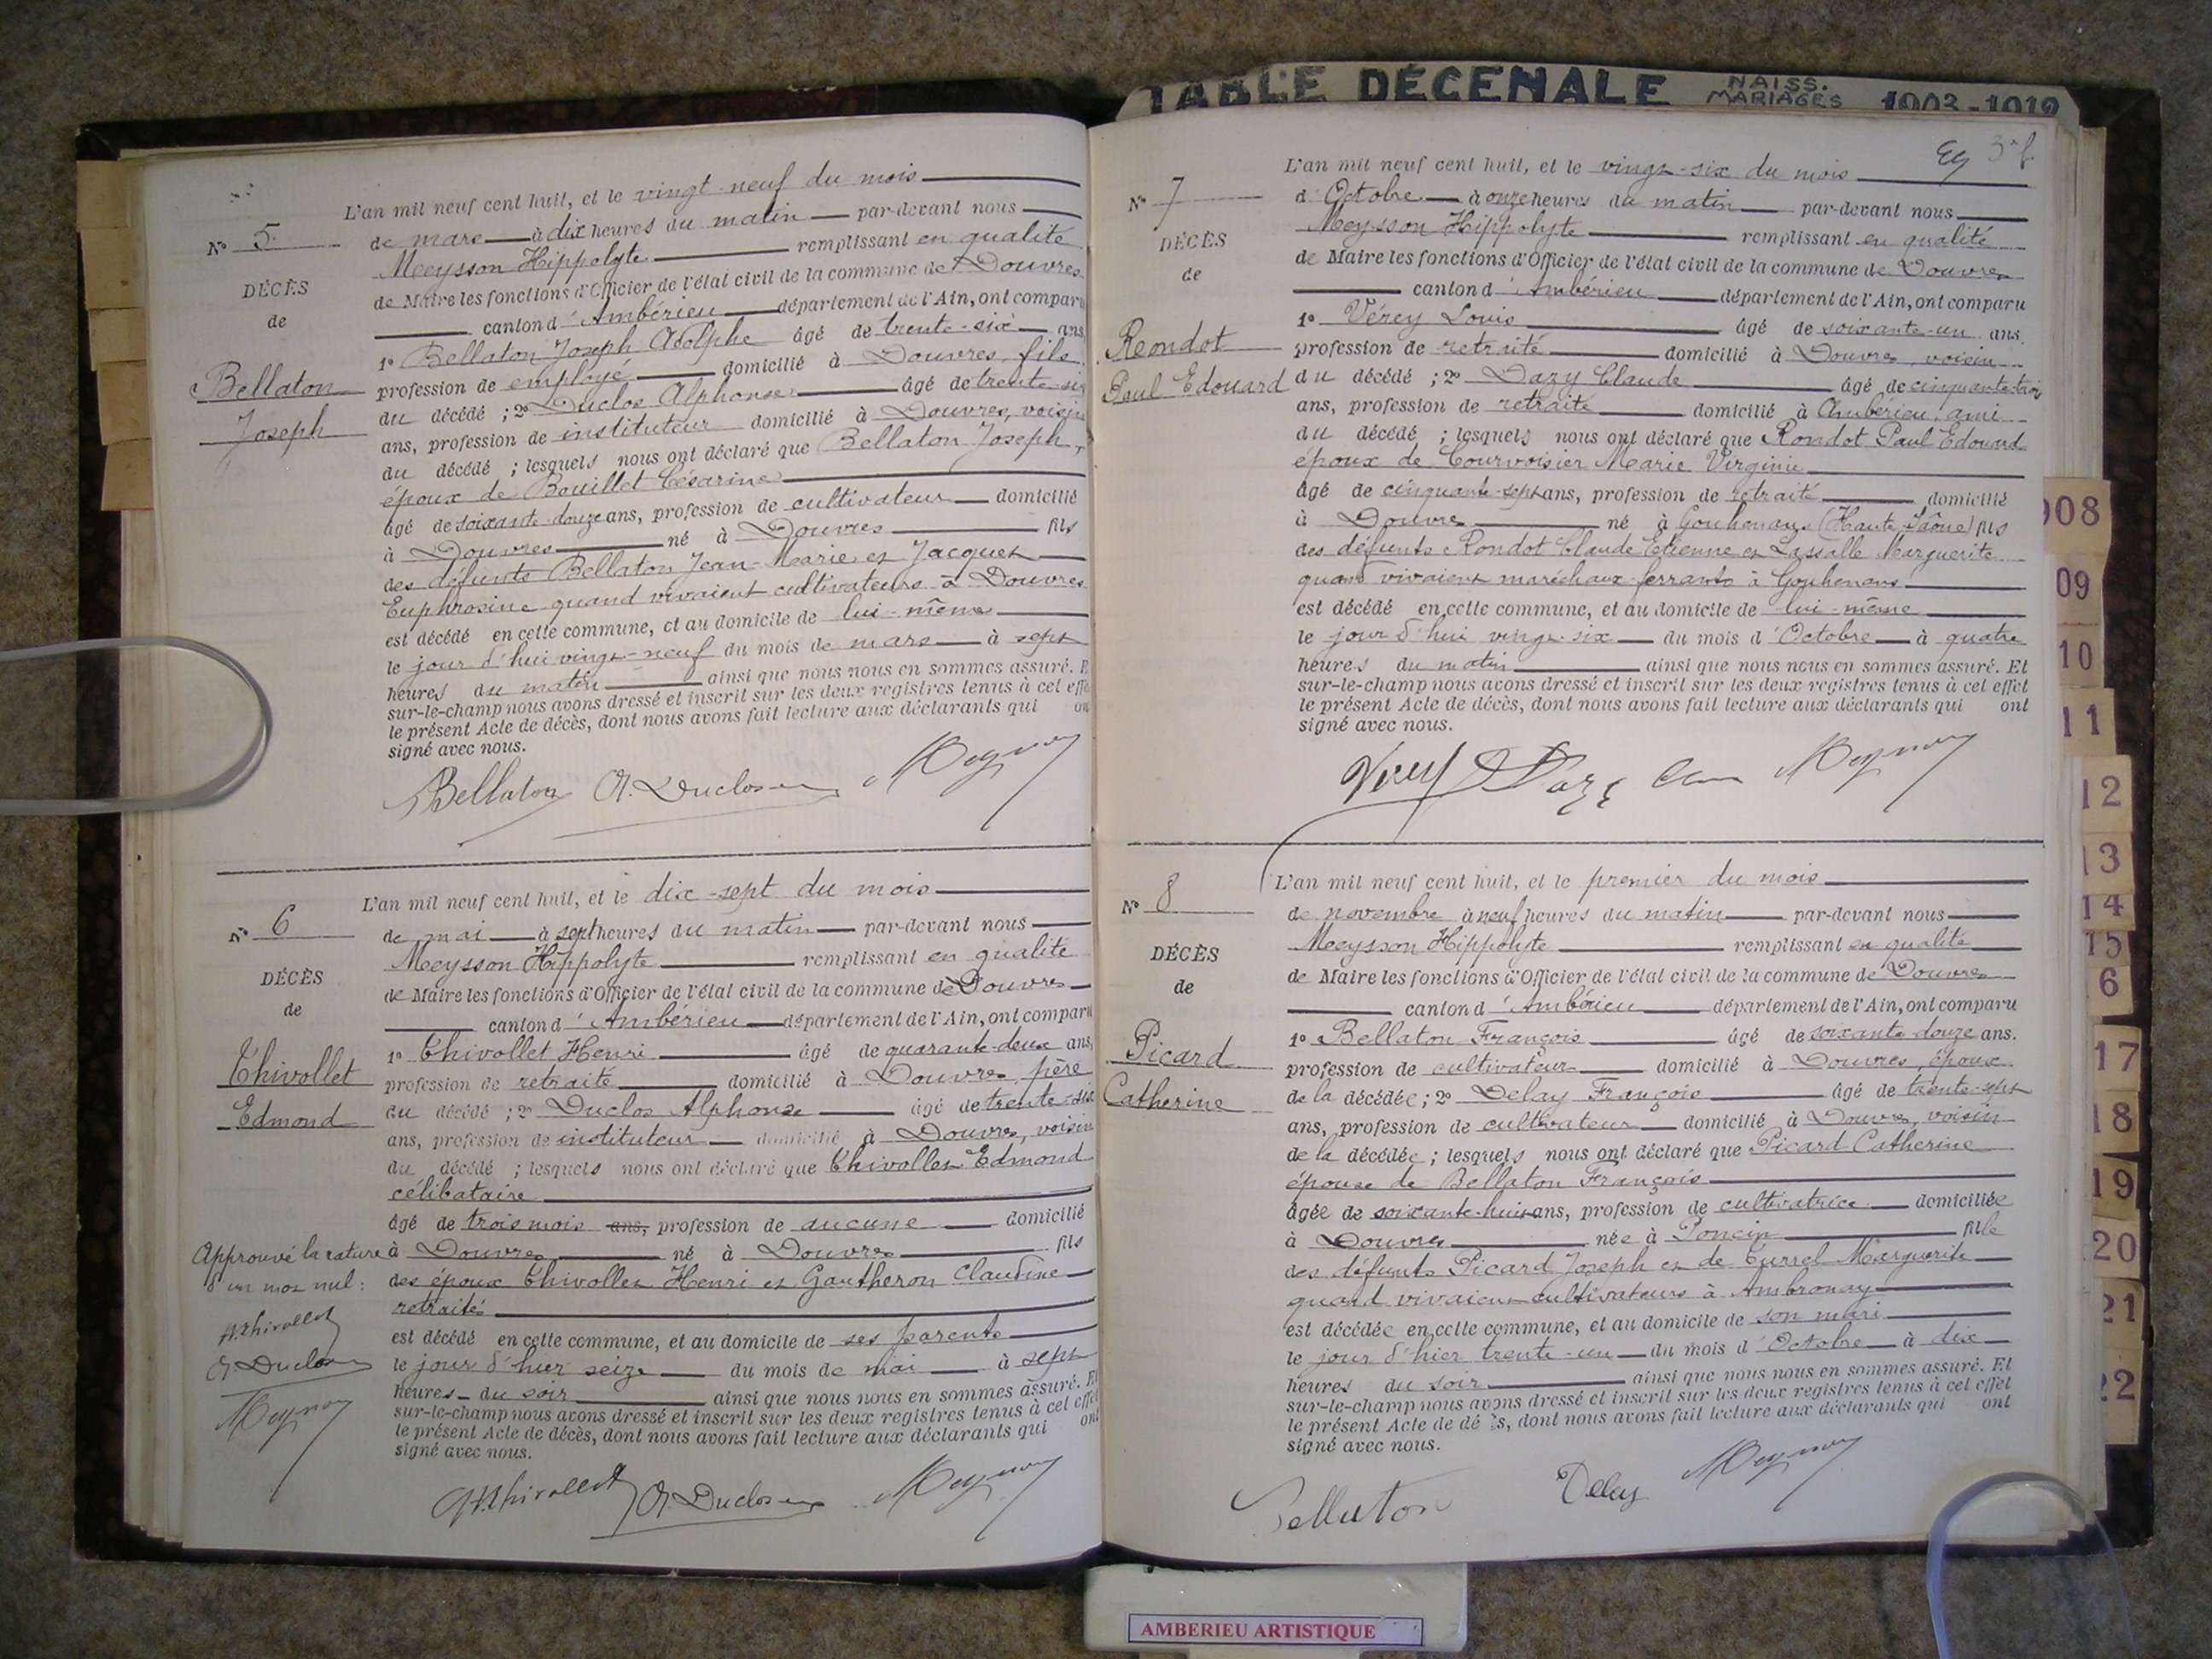 TABLE DÉCENALE NAISS. MARIAGES 1903-1912
L'an mil neuf cent huit, et le vingt-neuf du mois
N° 5
de mars à dix heures du matin par-devant nous
Meysson Hippolyte remplissant en qualité
DÉCÈS
de Maire les fonctions d'Officier de l'état civil de la commune de Douvres
de
canton d'Ambérieu département de l'Ain, ont comparu
1° Bellaton Joseph Adolphe âgé de trente-six ans
Bellaton
profession de employé domicilié à Douvres, fils
Joseph
du décédé ; 2° Duclos Alphonse âgé de trente-six
ans, profession de instituteur domicilié à Douvres, voisin
du décédé ; lesquels nous ont déclaré que Bellaton Joseph,
époux de Bouillet Césarine
âgé de soixante-douze ans, profession de cultivateur domicilié
à Douvres né à Douvres fils
des défunts Bellaton Jean-Marie et Jacquet
Euphrosine quand vivaient cultivateurs à Douvres
est décédé en cette commune, et au domicile de lui-même
le jour d'hui vingt-neuf du mois de mars à sept
heures du matin ainsi que nous nous en sommes assuré. E
sur-le-champ nous avons dressé et inscrit sur les deux registres tenus à cet effe
le présent Acte de décès, dont nous avons fait lecture aux déclarants qui on
signé avec nous.
Bellaton A. Duclos
L'an mil neuf cent huit, et le dix-sept du mois
N° 6
de mai à sept heures du matin par-devant nous
Meysson Hippolyte remplissant en qualité
DÉCÈS
de Maire les fonctions d'Officier de l'état civil de la commune de Douvres
de
canton d'Ambérieu département de l'Ain, ont comparu
1° Thivollet Henri âgé de quarante-deux ans,
Thivollet
profession de retraité domicilié à Douvres, père
Edmond
du décédé ; 2° Duclos Alphonse âgé de trente-six
ans, profession de instituteur domicilié à Douvres, voisin
du décédé ; lesquels nous ont déclaré que Thivollet Edmond
célibataire
âgé de trois mois ans, profession de aucune domicilié
Approuvé la rature
à Douvres né à Douvres fils
d'un mot nul :
des époux Thivollet Henri et Gautheron Claudine
retraités
H. Thivollet
est décédé en cette commune, et au domicile de ses parents
A. Duclos
le jour d'hier seize du mois de mai à sept
heures du soir ainsi que nous nous en sommes assuré. Et
sur-le-champ nous avons dressé et inscrit sur les deux registres tenus à cet effet
le présent Acte de décès, dont nous avons fait lecture aux déclarants qui ont
signé avec nous.
H. Thivollet A. Duclos
L'an mil neuf cent huit, et le vingt-six du mois
N° 7
d'Octobre à onze heures du matin par-devant nous
Meysson Hippolyte remplissant en qualité
DÉCÈS
de Maire les fonctions d'Officier de l'état civil de la commune de Douvres
de
canton d'Ambérieu département de l'Ain, ont comparu
1° Vérey Louis âgé de soixante-un ans.
Rondot
profession de retraité domicilié à Douvres, voisin
Paul Edouard
du décédé ; 2° Dazy Claude âgé de cinquante-trois
ans, profession de retraité domicilié à Ambérieu, ami
du décédé ; lesquels nous ont déclaré que Rondot Paul Edouard
époux de Courvoisier Marie Virginie
âgé de cinquante-sept ans, profession de retraité domicilié
à Douvres né à Gouhenans (Haute-Saône) fils
des défunts Rondot Claude Etienne et Lassalle Marguerite
quand vivaient maréchaux-ferrants à Gouhenans
est décédé en cette commune, et au domicile de lui-même
le jour d'hui vingt-six du mois d'Octobre à quatre
heures du matin ainsi que nous nous en sommes assuré. Et
sur-le-champ nous avons dressé et inscrit sur les deux registres tenus à cet effet
le présent Acte de décès, dont nous avons fait lecture aux déclarants qui ont
signé avec nous.
Verey Dazy
L'an mil neuf cent huit, et le premier du mois
N° 8
de novembre à neuf heures du matin par-devant nous
Meysson Hippolyte remplissant en qualité
DÉCÈS
de Maire les fonctions d'Officier de l'état civil de la commune de Douvres
de
canton d'Ambérieu département de l'Ain, ont comparu
1° Bellaton François âgé de soixante-douze ans.
Picard
profession de cultivateur domicilié à Douvres, époux
Catherine
de la décédée ; 2° Delay François âgé de trente-sept
ans, profession de cultivateur domicilié à Douvres, voisin
de la décédée ; lesquels nous ont déclaré que Picard Catherine
épouse de Bellaton François
âgée de soixante-huit ans, profession de cultivatrice domiciliée
à Douvres née à Poncin fille
des défunts Picard Joseph et de Turrel Marguerite
quand vivaient cultivateurs à Ambronay
est décédée en cette commune, et au domicile de son mari
le jour d'hier trente-un du mois d'Octobre à dix
heures du soir ainsi que nous nous en sommes assuré. Et
sur-le-champ nous avons dressé et inscrit sur les deux registres tenus à cet effet
le présent Acte de décès, dont nous avons fait lecture aux déclarants qui ont
signé avec nous.
Bellaton Delay
908
09
10
11
12
13
14
15
6
17
18
19
20
21
22
AMBERIEU ARTISTIQUE